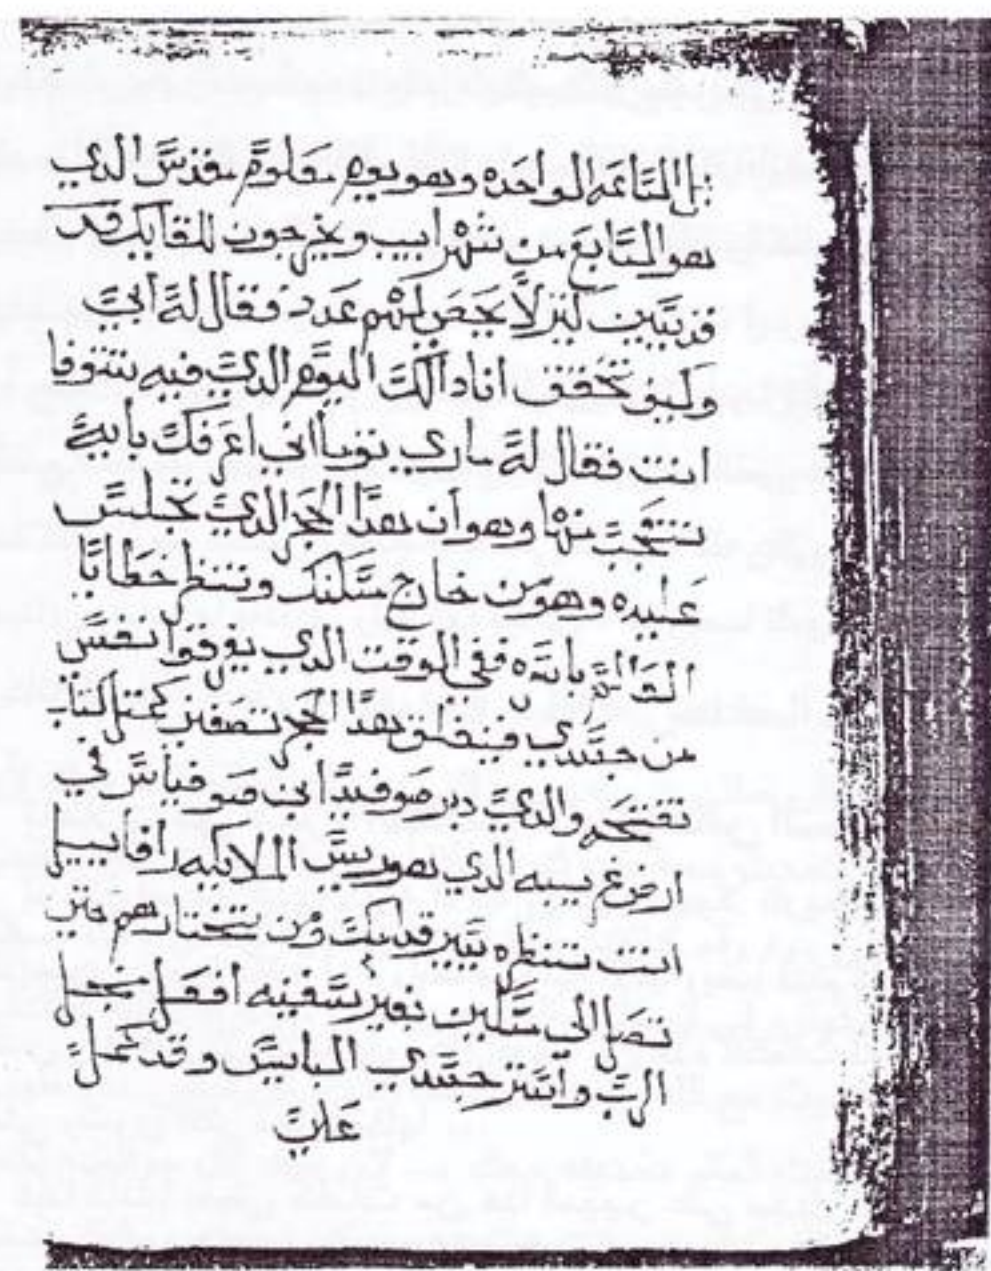 الساعه الواحده وهو يوم معلوم مقدس الدي
هو السابع من شهر ابيب ويخرجون للقايك قد
قديسين ليز لا يحص لهم عدد فقال له ابي
وكيف تحقق انا دالك اليوم الدي فيه تتوفا
انت فقال له ماري توبا اني اعرفك باية
تتعجب منها وهو ان هدا الحجر الدي تجلس
عليه وهو من خارج مسكنك وتنتظر خطابا
بانه ففي الوقت الدي يوفوا نفس
من جسدي فينفلق هدا الحجر نصفين كمثل كتاب
تفتحه والدي دير صوفيا في
ارض الدي هو ريس الملايكه رافاييل
انت تنتظره يسير قدامك ومن تختارهم حتي
تصل الي مسكين بغير سفينه افعل بعجل
الرب واستر جسدي البايس وقد كمل
علي